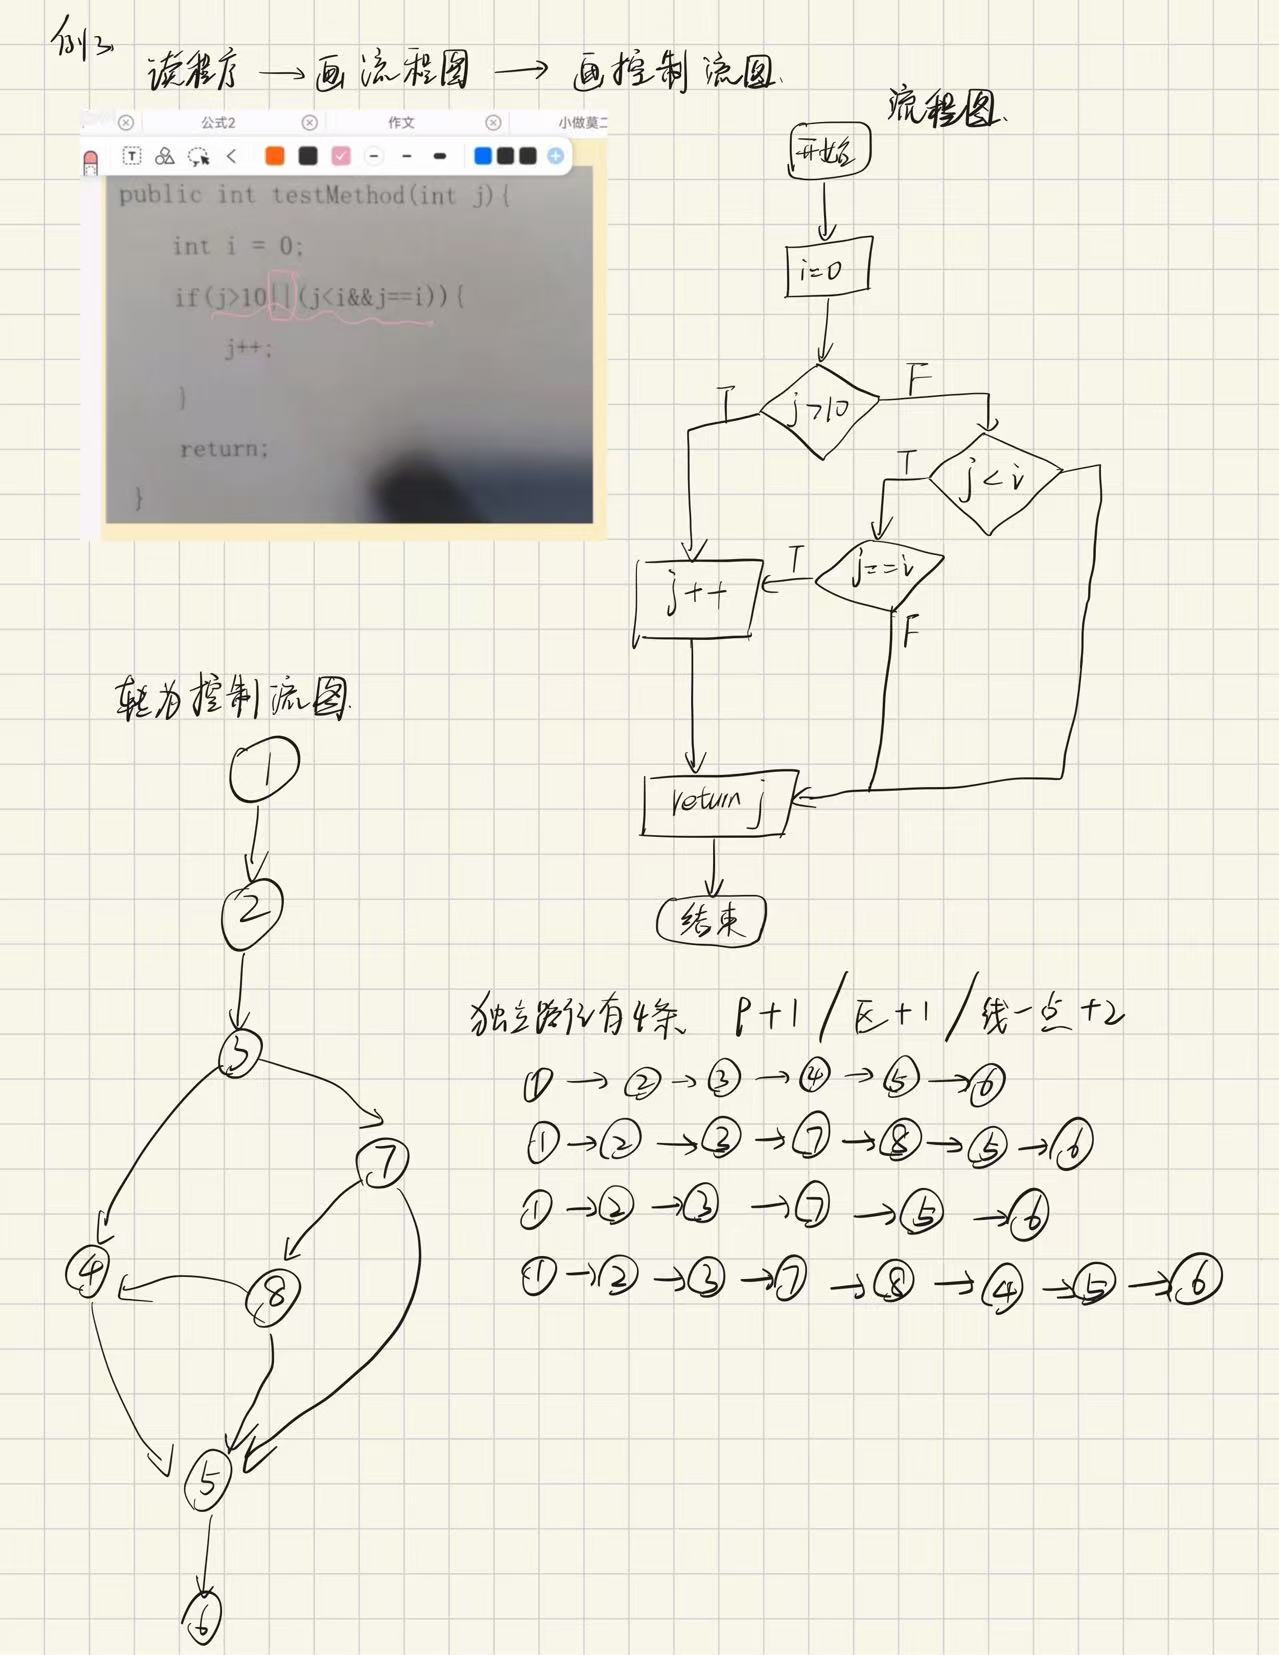 例3
读程序 → 画流程图 → 画控制流图.
流程图.
公式2
作文
小做莫二
public int testMethod(int j){
int i = 0;
if(j>10||(j<i&&j==i)){
j++;
}
return;
}
开始
i=0
j>10
T
F
j<i
T
j==i
T
F
j++
return j
结束
转为控制流图.
1
2
3
7
4
8
5
6
独立路径有4条、 P+1 / 区+1 / 线-点+2
① → ② → ③ → ④ → ⑤ → ⑥
① → ② → ③ → ⑦ → ⑧ → ⑤ → ⑥
① → ② → ③ → ⑦ → ⑤ → ⑥
① → ② → ③ → ⑦ → ⑧ → ④ → ⑤ → ⑥